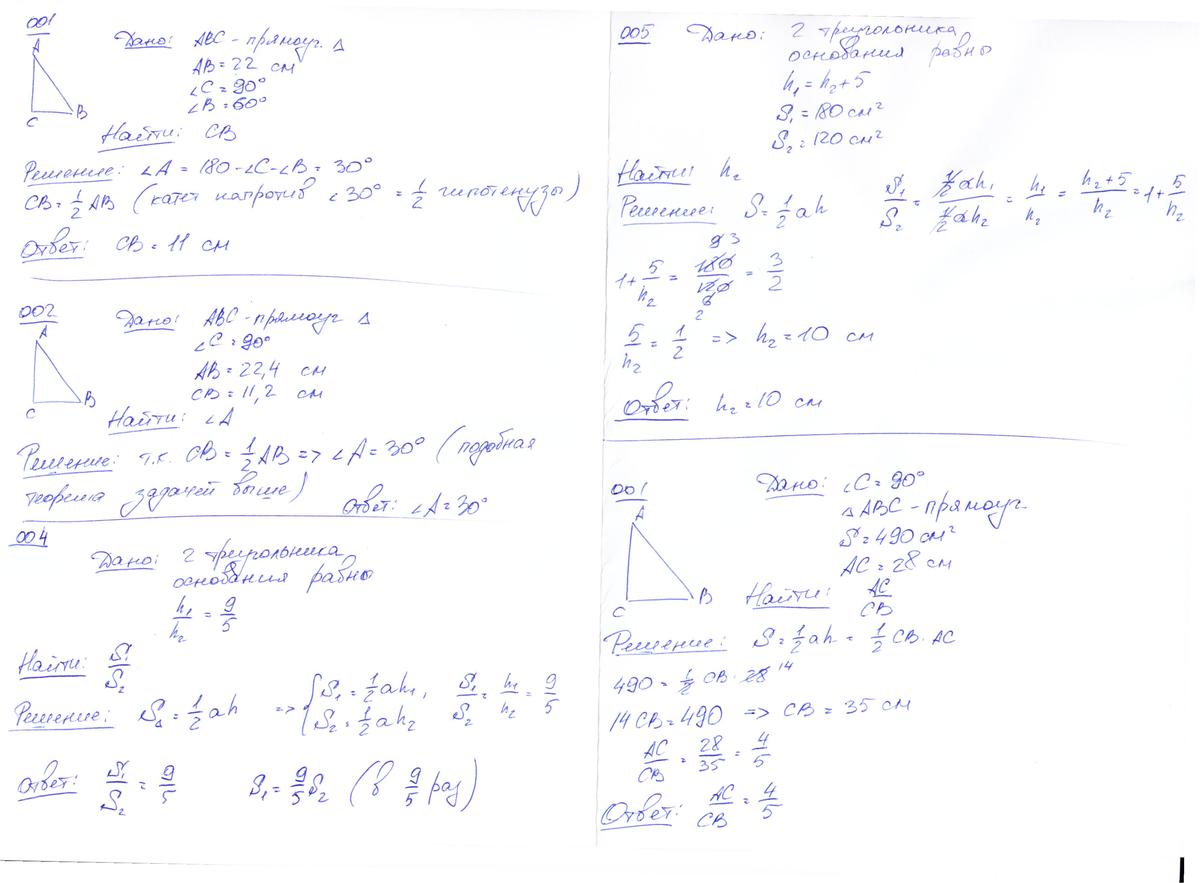 001
A
C
B
Дано: ABC - прямоуг. △
AB = 22 см
∠C = 90°
∠B = 60°
Найти: CB
Решение: ∠A = 180 - ∠C - ∠B = 30°
CB = 1/2 AB (катет напротив ∠30° = 1/2 гипотенузы)
Ответ: CB = 11 см
002
A
C
B
Дано: ABC - прямоуг △
∠C = 90°
AB = 22,4 см
CB = 11,2 см
Найти: ∠A
Решение: т.к. CB = 1/2 AB => ∠A = 30° (подобная
теорема задачей выше) Ответ: ∠A = 30°
004
Дано: 2 триугольника
основания равны
h₁/h₂ = 9/5
Найти: S₁/S₂
Решение: S = 1/2 ah => { S₁ = 1/2 ah₁, S₂ = 1/2 ah₂ S₁/S₂ = h₁/h₂ = 9/5
Ответ: S₁/S₂ = 9/5 S₁ = 9/5 S₂ (в 9/5 раз)
005
Дано: 2 триугольника
основания равны
h₁ = h₂ + 5
S₁ = 180 см²
S₂ = 120 см²
Найти: h₂
Решение: S = 1/2 ah S₁/S₂ = 1/2 ah₁ / 1/2 ah₂ = h₁/h₂ = h₂+5/h₂ = 1 + 5/h₂
9 3
1 + 5/h₂ = 180/120 = 3/2
6
2
5/h₂ = 1/2 => h₂ = 10 см
Ответ: h₂ = 10 см
001
A
C
B
Дано: ∠C = 90°
△ ABC - прямоуг.
S = 490 см²
AC = 28 см
Найти: AC/CB
Решение: S = 1/2 ah = 1/2 CB · AC
490 = 1/2 CB · 28 14
14 CB = 490 => CB = 35 см
AC/CB = 28/35 = 4/5
Ответ: AC/CB = 4/5